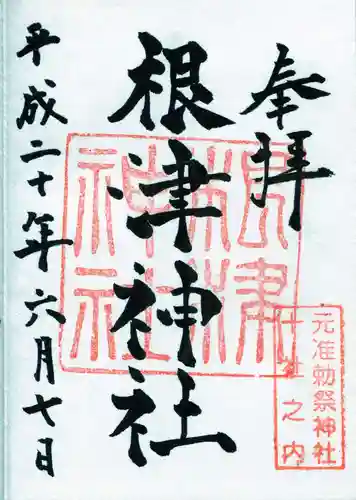 奉拝
元准勅祭神社
十社之内
根津神社
根津神社
平成二十年六月七日